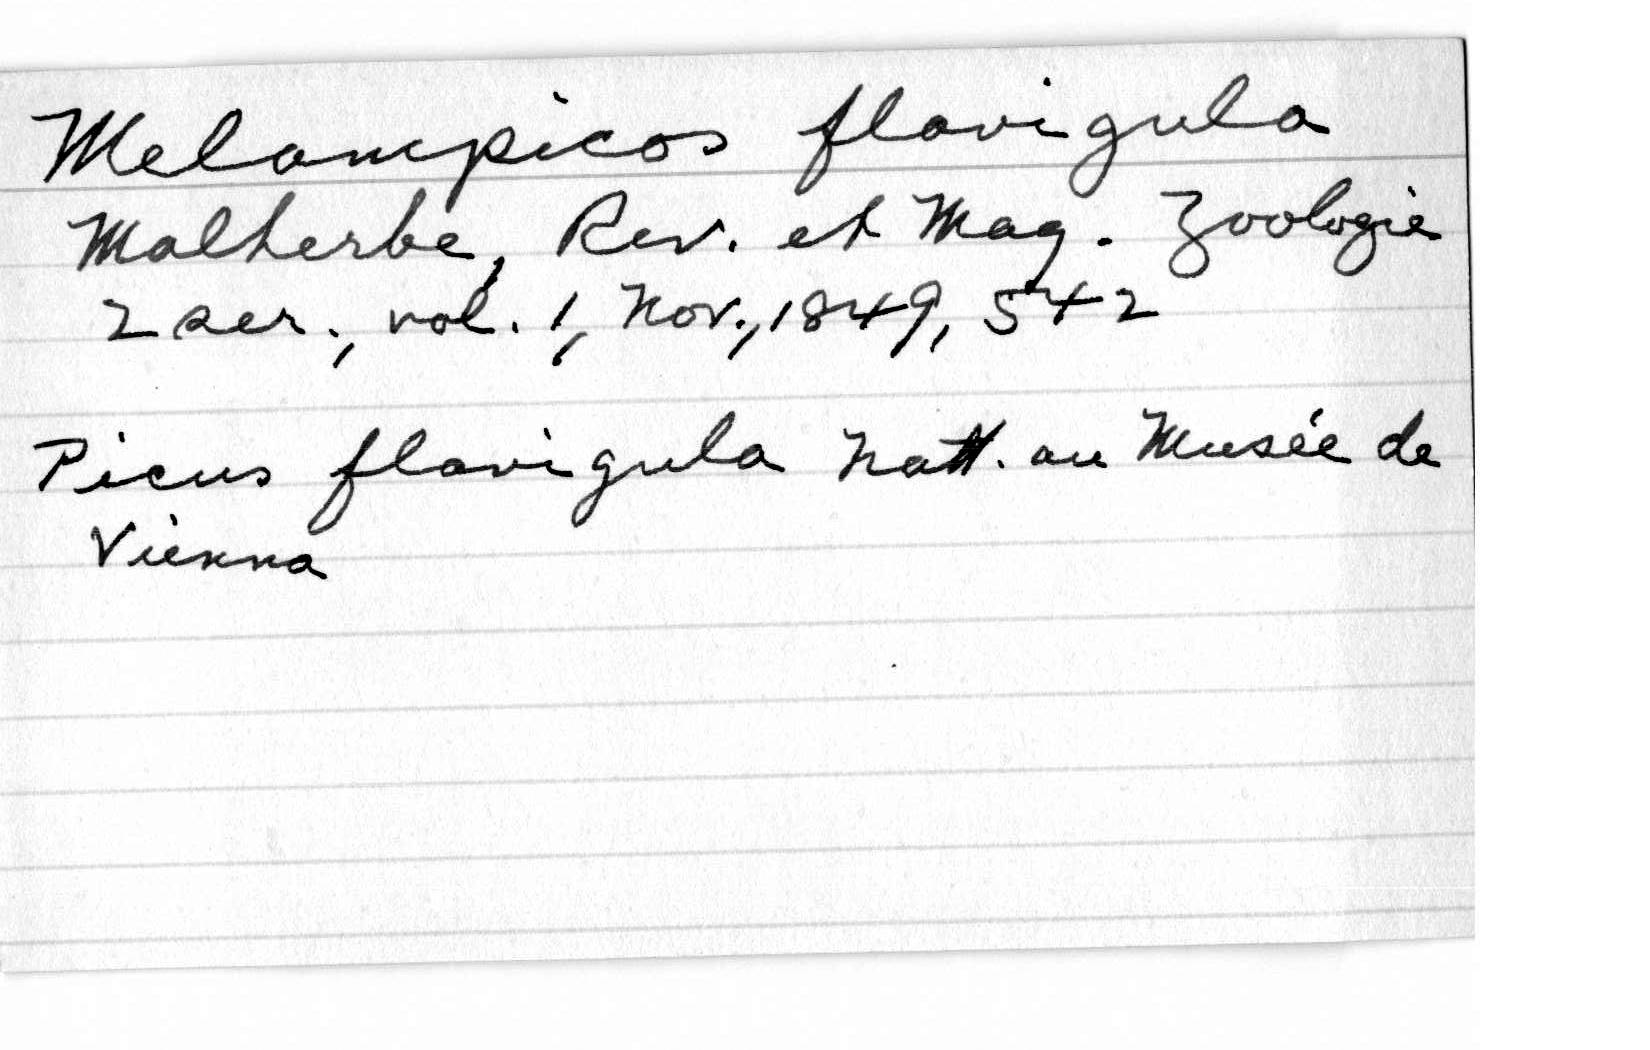 Melampicos flavigula
Malherbe, Rev. et Mag. Zoologie
2 ser., vol. 1, Nov., 1849, 542
Picus flavigula Natt. au Musée de
Vienna